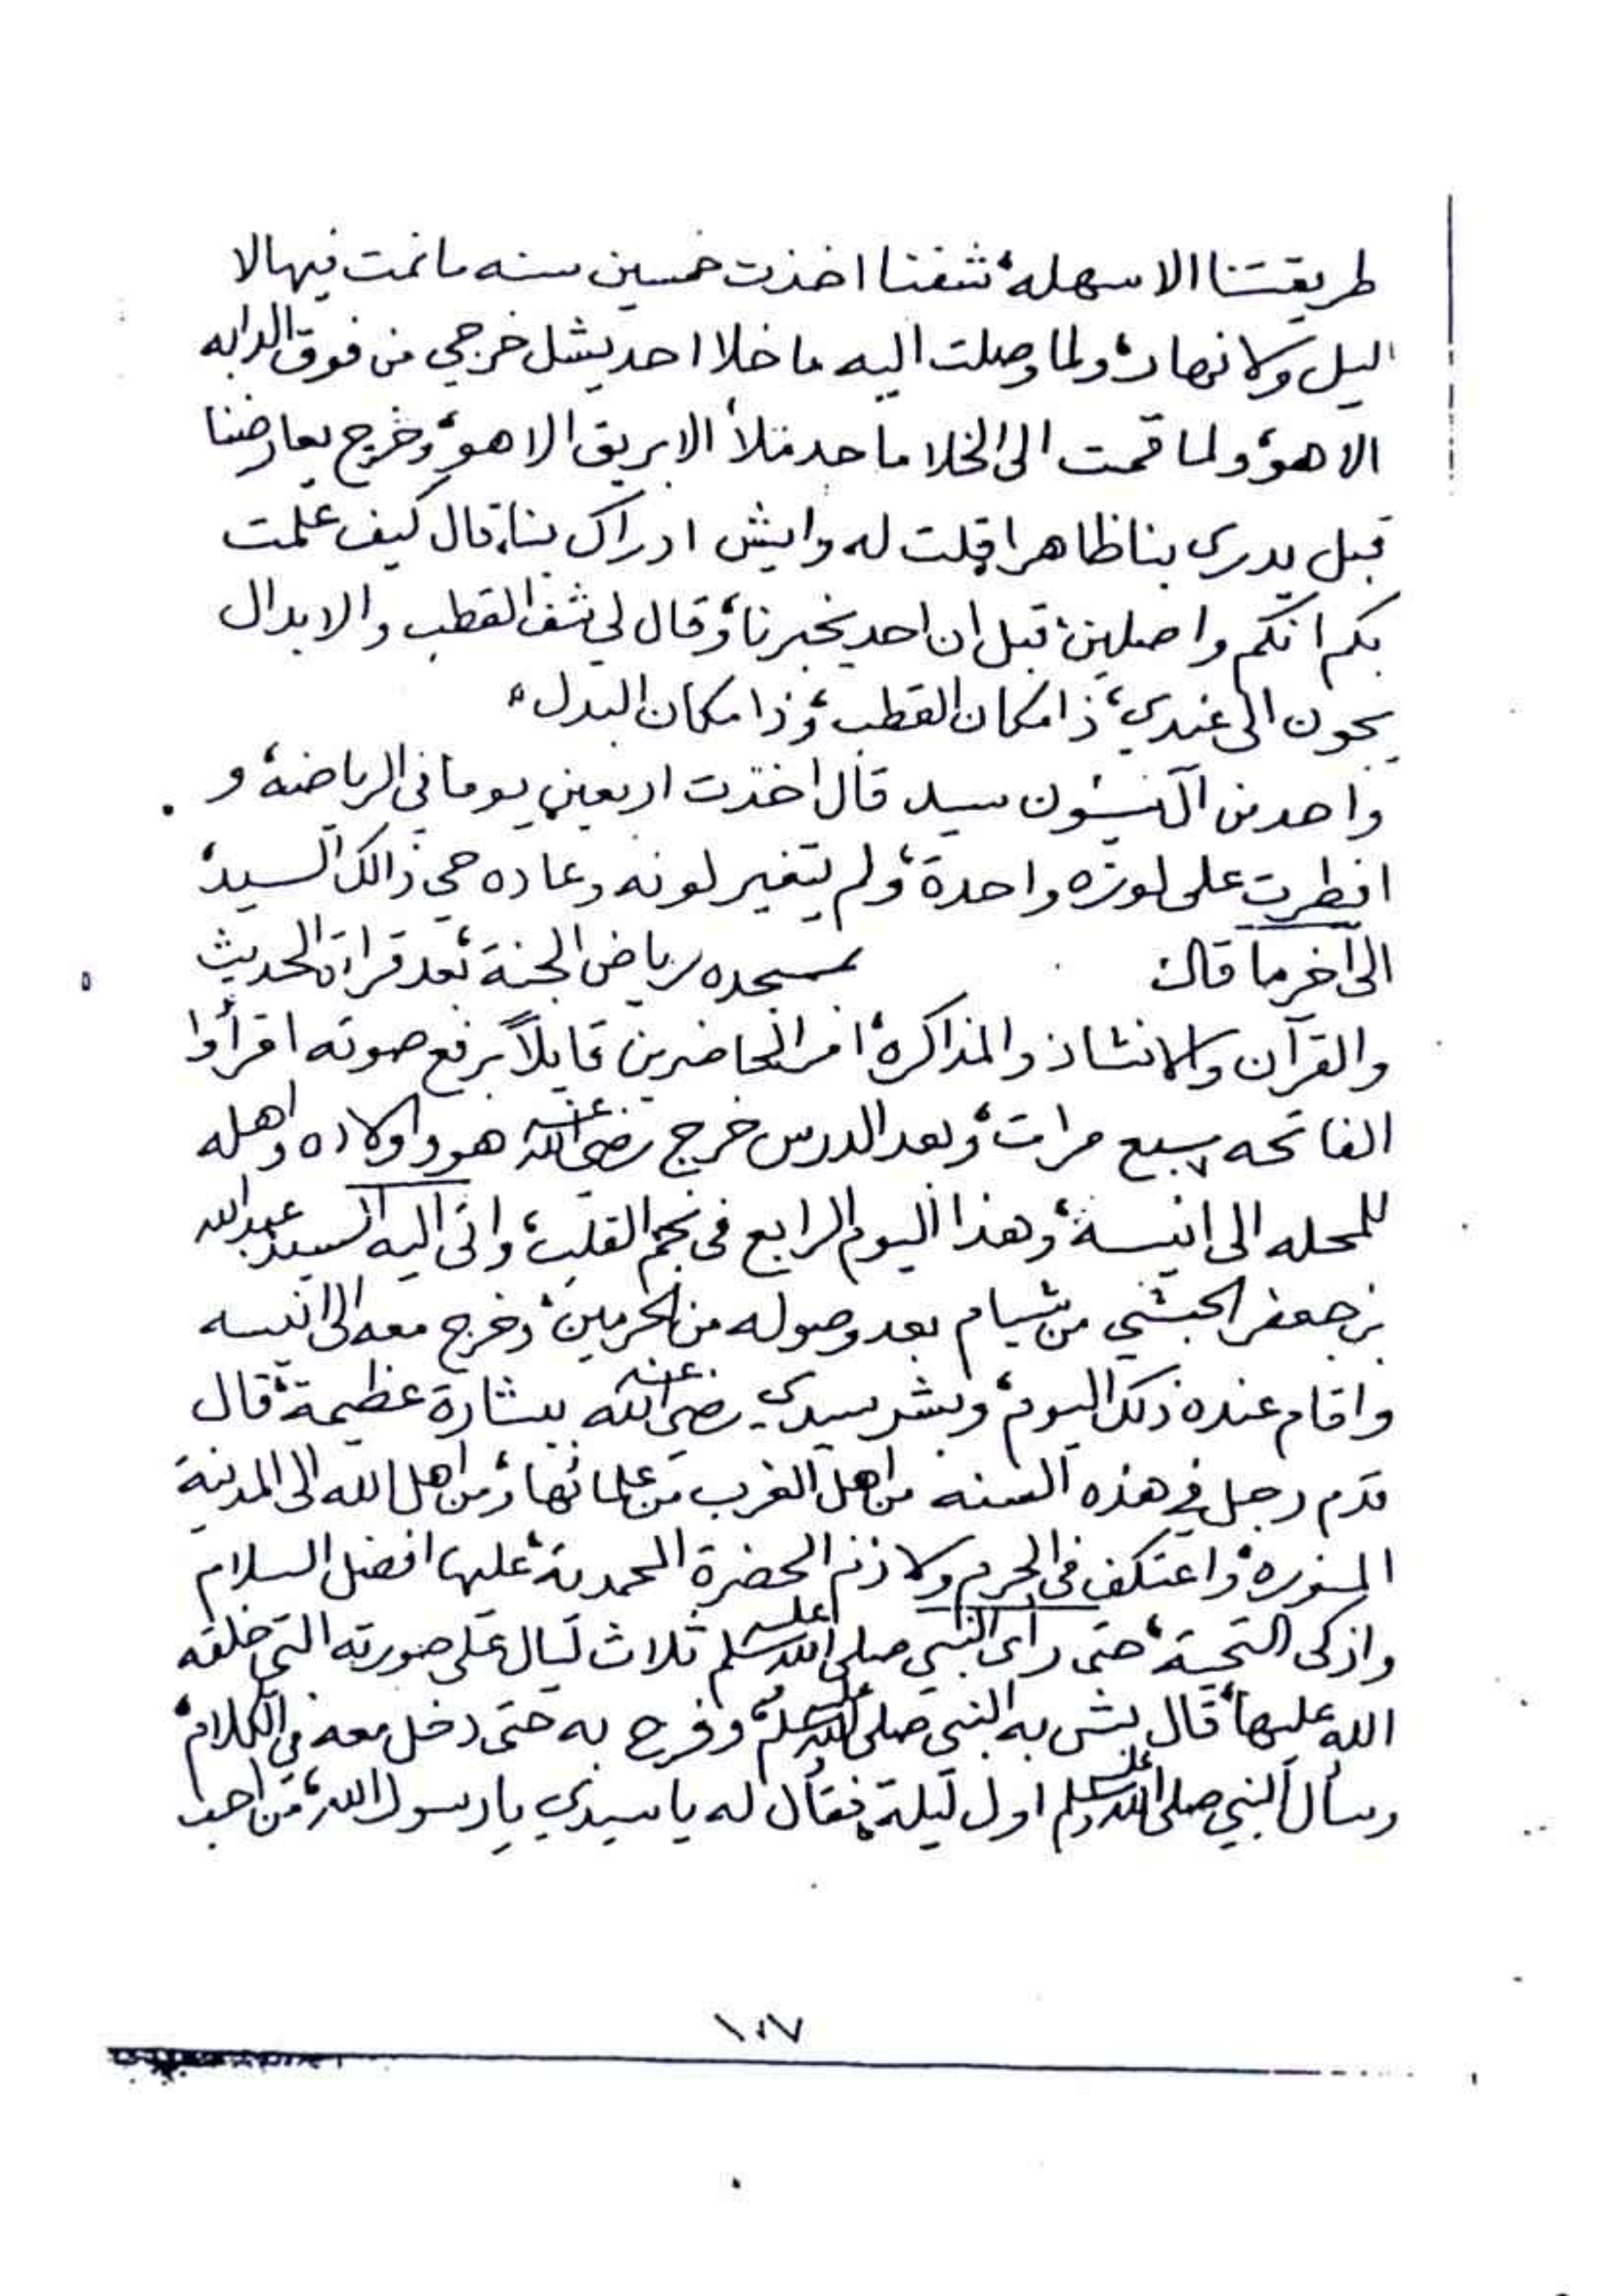 طريقتنا الا سهله، شفنا اخذت خمسين سنه ما نمت فيها لا
اليل ولا نهار، ولما وصلت اليه ما خلا احد يشل خرجي من فوق الدابه
الا هو، ولما قمت الى الخلا ما حد ملأ الابريق الا هو، وخرج يعارضنا
قبل يدري بنا ظاهرا، قلت له وايش ادراك بنا، قال كيف علمت
بكم انكم واصلين، قبل ان احد يخبرنا، وقال لي شف القطب والابدال
يجون الى عندي، ذا مكان القطب، وذا مكان البدل،
واحد من سيد قال اخذت اربعين يوما في الرياضه، و
افطرت على لوزه واحدة، ولم يتغير لونه وعاده حي ذالك السيد،
الى آخر ما قال، بمسجده رياض الجنة، بعد قراءة الحديث
والقرآن والانشاد والمذاكرة، امر الحاضرين قايلاً برفع صوته اقرأوا
الفاتحه سبع مرات، وبعد الدرس خرج رضي الله عنه هو واولاده واهله
للمحله الى انيسة، وهذا اليوم الرابع في نجم القلب، واتى اليه السيد عبدالله
بن جعفر الحبشي من شبام بعد وصوله من الحرمين، وخرج معه الى انيسه
واقام عنده ذلك اليوم، وبشر سيدي رضي الله عنه ببشارة عظيمة، قال
قدم رجل في هذه السنه من اهل الغرب من علمائها، ومن اهل الله الى المدينة
المنوره، واعتكف في الحرم ولازم الحضرة المحمدية، عليها افضل السلام
وازكى التحية، حتى رأى النبي صلى الله عليه وسلم ثلاث ليال على صورته التي خلقه
الله عليها، قال بش به النبي صلى الله عليه وسلم، وفرح به حتى دخل معه في الكلام،
وسأل النبي صلى الله عليه وسلم اول ليلة، فقال له يا سيدي يا رسول الله، من احب
١٠٧